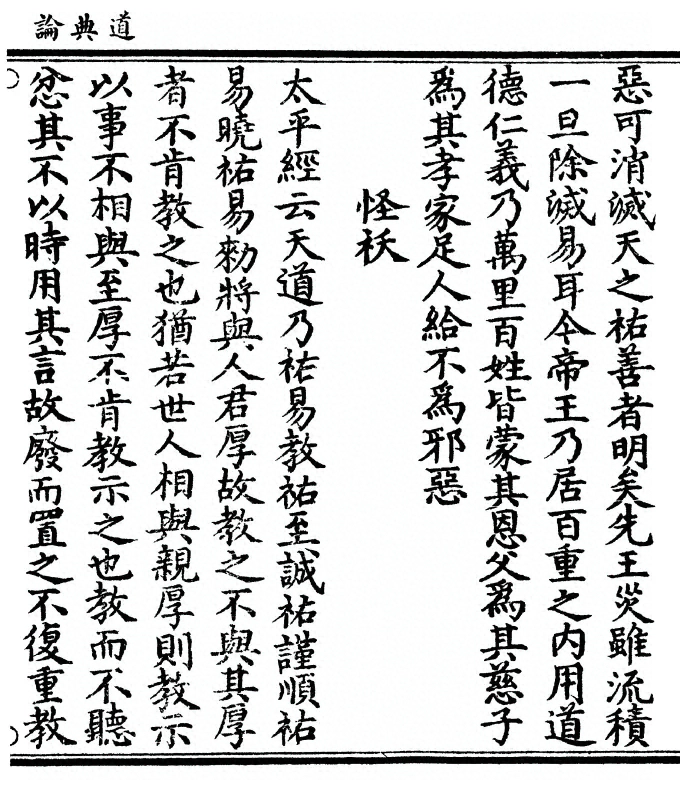 道典論
惡可消滅天之祐善者明矣先王災雖流積
一旦除滅易耳今帝王乃居百重之內用道
德仁義乃萬里百姓皆蒙其恩父爲其慈子
爲其孝家足人給不爲邪惡
怪祅
太平經云天道乃祐易教祐至誠祐謹順祐
易曉祐易勑將與人君厚故教之不與其厚
者不肯教之也猶若世人相與親厚則教示
以事不相與至厚不肯教示之也教而不聽
忿其不以時用其言故廢而置之不復重教